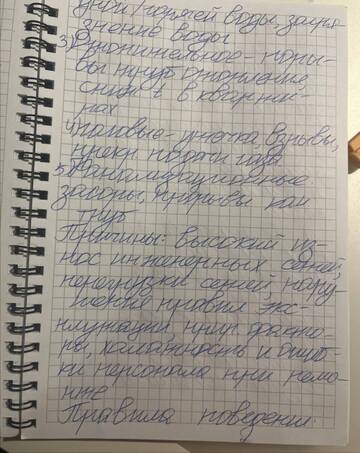 дной/горячей воды, загря-
знение воды
3) Отопительное - поры-
вы труб отопления
сниж t в кварти-
рах
4) газовые - утечка, взрывы,
прекр подачи газа
5. Канализационные:
засоры, прорывы кан
труб
Причины: высокий из-
нос инженерных сетей,
перегрузки сетей, нару-
шения правил экс-
плуатации, прир факто-
ры, халатность и ошиб-
ки персонала при ремо-
нте
Правила поведения: